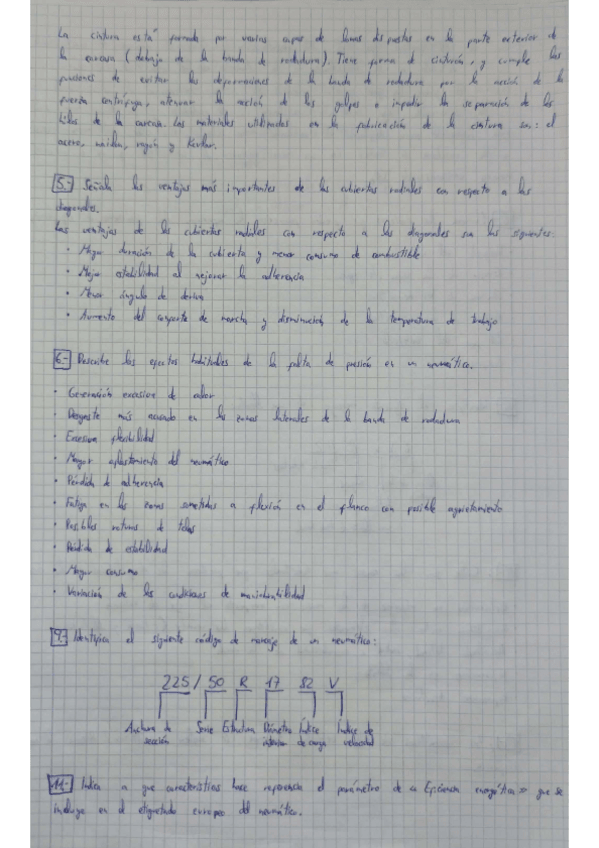 La cintura está formada por varias capas de lonas dispuestas en la parte exterior de
la carcasa (debajo de la banda de rodadura). Tiene forma de cinturón, y cumple las
funciones de evitar las deformaciones de la banda de rodadura por la acción de la
fuerza centrífuga, atenuar la acción de los golpes e impedir la separación de los
hilos de la carcasa. Los materiales utilizados en la fabricación de la cintura son: el
acero, nailon, rayón y Kevlar.
5.- Señala las ventajas más importantes de las cubiertas radiales con respecto a las
diagonales.
Las ventajas de las cubiertas radiales con respecto a las diagonales son las siguientes:
• Mayor duración de la cubierta y menor consumo de combustible
• Mejor estabilidad al mejorar la adherencia
• Menor ángulo de deriva
• Aumento del confort de marcha y disminución de la temperatura de trabajo
6.- Describe los efectos habituales de la falta de presión en un neumático.
• Generación excesiva de calor
• Desgaste más acusado en las zonas laterales de la banda de rodadura
• Excesiva flexibilidad
• Mayor aplastamiento del neumático
• Pérdida de adherencia
• Fatiga en las zonas sometidas a flexión en el flanco con posible agrietamiento
• Posibles roturas de telas
• Pérdida de estabilidad
• Mayor consumo
• Variación de las condiciones de maniobrabilidad
9.- Identifica el siguiente código de marcaje de un neumático:
225 / 50 R 17 82 V
Anchura de sección Serie Estructura Diámetro interior Índice de carga Índice de velocidad
11.- Indica a que características hace referencia el parámetro de << Eficiencia energética >> que se
incluye en el etiquetado europeo del neumático.